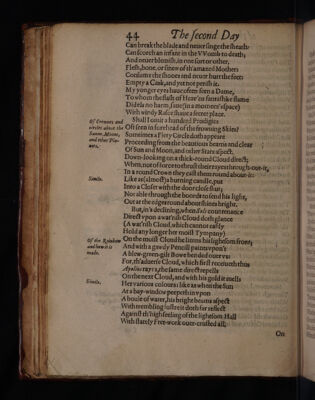 44 The second Day
Can break the blade and neuer singe the sheath:
Can scorch an infant in the VVomb to death,
And neuer blemish, in one sort or other,
Flesh, bone, or sinew of th'amazed Mother:
Consume the shooes and neuer hurt the feet:
Empty a Cask, and yet not perish it.
My yonger eyes haue often seen a Dame,
To whom the flash of Heav'n
Did els no harm, saue (in a moment's space)
With windy Rasor shaue a secret place.
Of Crownes and
circles about the
Sunne, Moone,
and other Pla-
nets.
Shall I omit a hundred Prodigies
Oft seen in forehead of the frowning Skies?
Sometimes a Fiery Circle doth appeare
Proceeding from the beautious beams and clear
Of Sun and Moon, and other Stars aspect,
Down-looking on a thick-round Cloud direct;
When, not of force to thrust their rayes through-out-it,
In a round Crown they cast them round about-it:
Simile.
Like as (almost) a burning candle, put
Into a Closet with the door close shut;
Not able through the boords to send his light,
Out at the edges round about shines bright.
But, in's declining, when Sols countenance
Direct vpon a wat'rish Cloud doth glance
(A wat'rish Cloud, which cannot easily
Hold any longer her moist Tympany)
Of the Rainbow
and how it is
made.
On the moist Cloud he limns his lightsom front;
And with a gawdy Pencill paints vpon't
A blew-green-gilt Bowe bended ouer vs:
For, th'aduerse Cloud, which first receiueth thus
Apollos rayes, the same direct repells
On the next Cloud, and with his gold it mells
Simile.
Her various colours: like as when the sun
At a bay-window peepeth in vpon
A boule of water, his bright beams aspect
With trembling lustre it doth far reflect
Against th'high seeling of the lightsom Hall
With stately Fret-work ouer-crusted all.
On